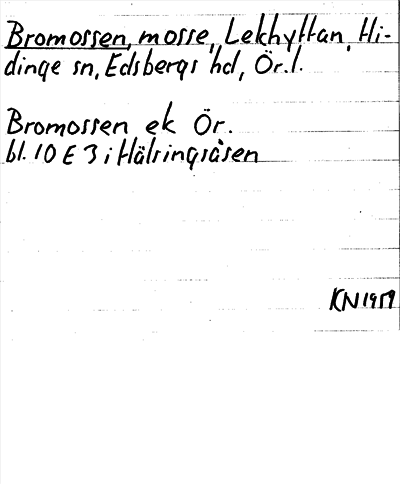 Bromossen, mosse, Lekhyttan, Hi-
dinge sn, Edsbergs hd, Ör.l.
Bromossen ek Ör.
bl. 10 E 3 i Hälsingsåsen
KN 1959